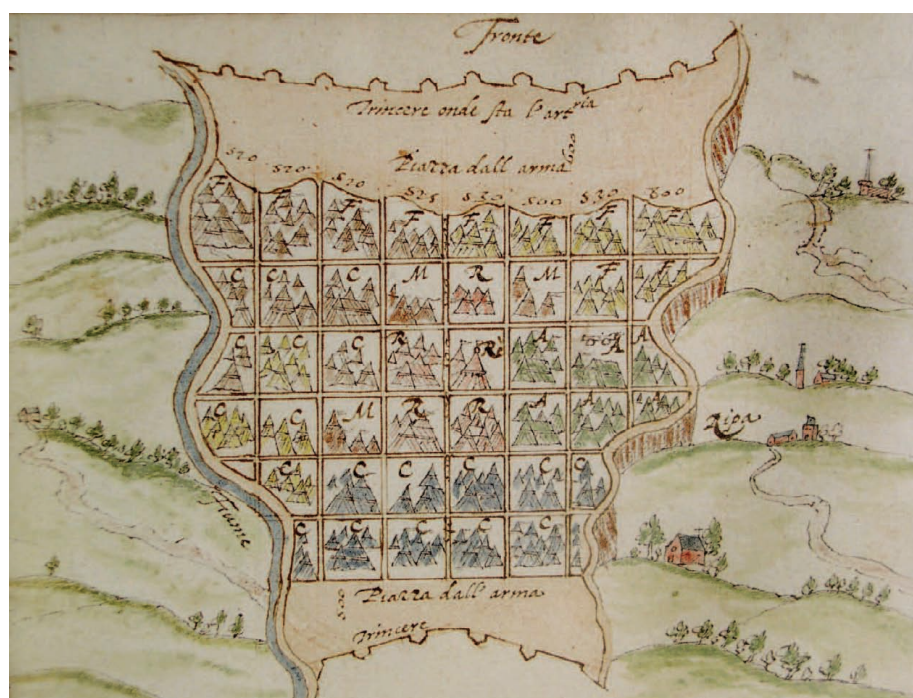 Fronte
Trincere onde sta l'art.ria
Piazza dall arma
520 520 520 525 530 500 530 500
F F F F F F F F
C C C M R M F F
C C C R Re A A A
C C M R R A A A
Ripa
C C C C C C
Fiume
C C C C C C
Piazza dall' arma
Trincere